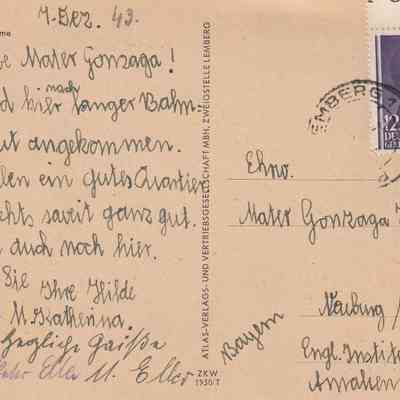 1. Dez. 43.
me
be Mater Gonzaga!
d hier nach langer Bahn-
ut angekommen.
len ein gutes Quartier
hts soweit ganz gut.
n auch noch hier.
Sie Ihre Hilde
M. Katherina.
Herzliche Grüße
M. Eller
ATLAS-VERLAGS- UND VERTRIEBSGESELLSCHAFT MBH, ZWEIGSTELLE LEMBERG
ZKW
1930/7
EMBERG 1
12
Ehrw.
Mater Gonzaga
Neuburg /
Bayern
Engl. Institu
Amalien